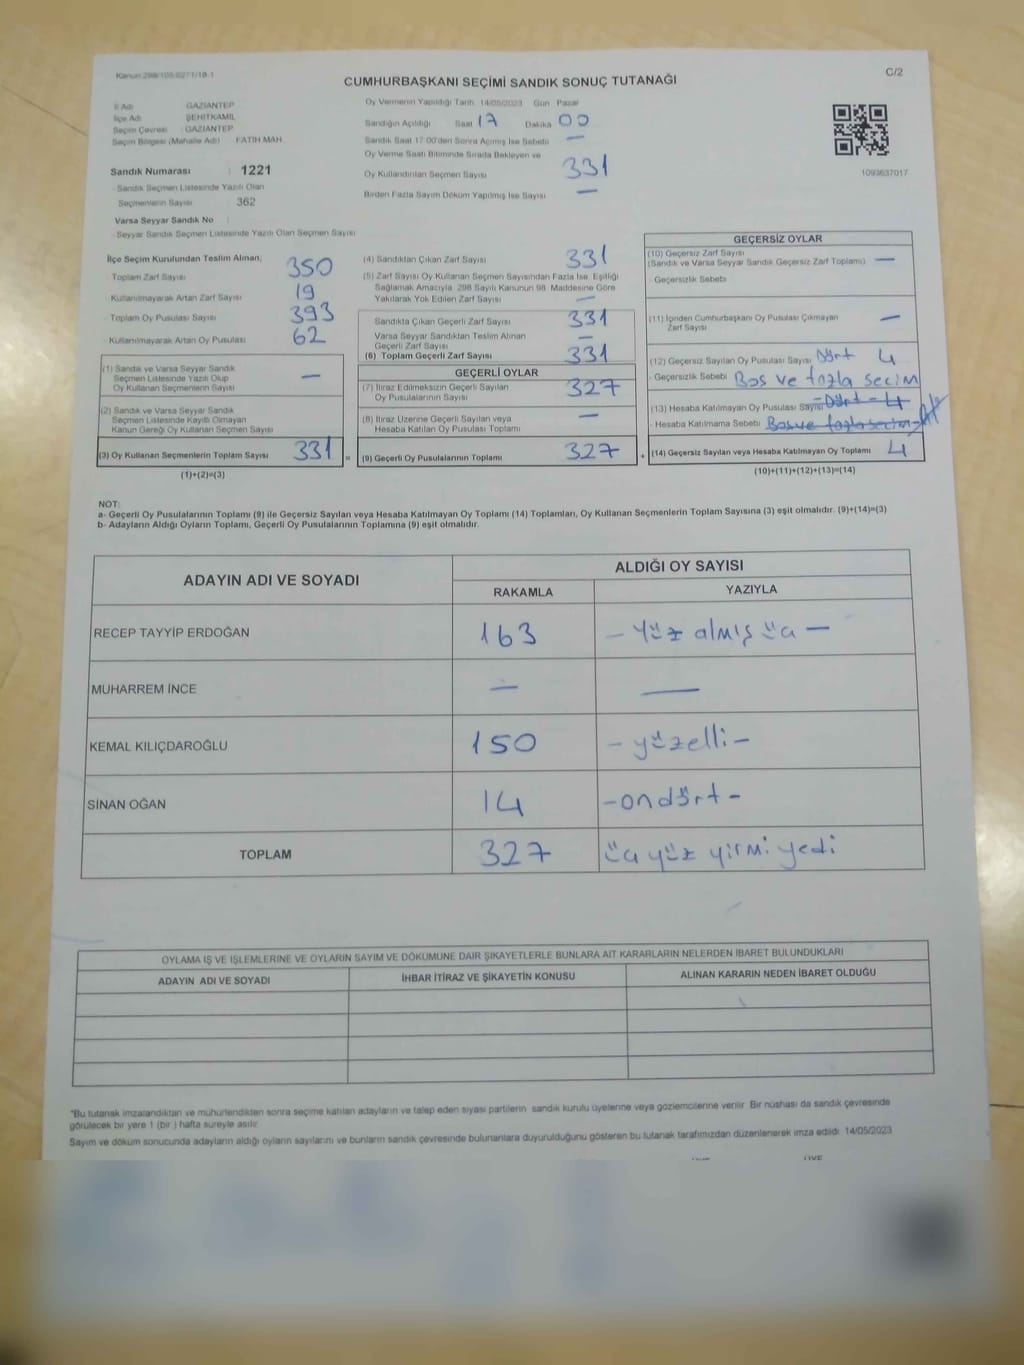 Kanun:298/105,6271/18-1
C/2
CUMHURBAŞKANI SEÇİMİ SANDIK SONUÇ TUTANAĞI
İl Adı GAZİANTEP
İlçe Adı ŞEHİTKAMİL
Seçim Çevresi : GAZİANTEP
Seçim Bölgesi (Mahalle Adı) FATİH MAH.
Sandık Numarası : 1221
Sandık Seçmen Listesinde Yazılı Olan
Seçmenlerin Sayısı 362
Varsa Seyyar Sandık No :
Seyyar Sandık Seçmen Listesinde Yazılı Olan Seçmen Sayısı
Oy Vermenin Yapıldığı Tarih 14/05/2023 Gün Pazar
Sandığın Açıldığı Saat 17 Dakika 00
Sandık Saat 17:00'den Sonra Açılmış İse Sebebi —
Oy Verme Saati Bitiminde Sırada Bekleyen ve
Oy Kullandırılan Seçmen Sayısı 331
Birden Fazla Sayım Döküm Yapılmış İse Sayısı —
1093637017
İlçe Seçim Kurulundan Teslim Alınan;
Toplam Zarf Sayısı 350
Kullanılmayarak Artan Zarf Sayısı 19
Toplam Oy Pusulası Sayısı 393
Kullanılmayarak Artan Oy Pusulası 62
(1) Sandık ve Varsa Seyyar Sandık
Seçmen Listesinde Yazılı Olup
Oy Kullanan Seçmenlerin Sayısı —
(2) Sandık ve Varsa Seyyar Sandık
Seçmen Listesinde Kayıtlı Olmayan
Kanun Gereği Oy Kullanan Seçmen Sayısı
(3) Oy Kullanan Seçmenlerin Toplam Sayısı 331 =
(1)+(2)=(3)
(4) Sandıktan Çıkan Zarf Sayısı 331
(5) Zarf Sayısı Oy Kullanan Seçmen Sayısından Fazla İse, Eşitliği
Sağlamak Amacıyla 298 Sayılı Kanunun 98. Maddesine Göre
Yakılarak Yok Edilen Zarf Sayısı —
Sandıkta Çıkan Geçerli Zarf Sayısı 331
Varsa Seyyar Sandıktan Teslim Alınan
Geçerli Zarf Sayısı —
(6) Toplam Geçerli Zarf Sayısı 331
GEÇERLİ OYLAR
(7) İtiraz Edilmeksizin Geçerli Sayılan
Oy Pusulalarının Sayısı 327
(8) İtiraz Üzerine Geçerli Sayılan veya
Hesaba Katılan Oy Pusulası Toplamı —
(9) Geçerli Oy Pusulalarının Toplamı 327 +
GEÇERSİZ OYLAR
(10) Geçersiz Zarf Sayısı
(Sandık ve Varsa Seyyar Sandık Geçersiz Zarf Toplamı) —
Geçersizlik Sebebi
(11) İçinden Cumhurbaşkanı Oy Pusulası Çıkmayan
Zarf Sayısı —
(12) Geçersiz Sayılan Oy Pusulası Sayısı Dört 4
Geçersizlik Sebebi Boş ve fazla seçim
(13) Hesaba Katılmayan Oy Pusulası Sayısı -Dört - 4
Hesaba Katılmama Sebebi Boş ve fazla seçim
(14) Geçersiz Sayılan veya Hesaba Katılmayan Oy Toplamı 4
(10)+(11)+(12)+(13)=(14)
NOT:
a- Geçerli Oy Pusulalarının Toplamı (9) ile Geçersiz Sayılan veya Hesaba Katılmayan Oy Toplamı (14) Toplamları, Oy Kullanan Seçmenlerin Toplam Sayısına (3) eşit olmalıdır. (9)+(14)=(3)
b- Adayların Aldığı Oyların Toplamı, Geçerli Oy Pusulalarının Toplamına (9) eşit olmalıdır.
ADAYIN ADI VE SOYADI
ALDIĞI OY SAYISI
RAKAMLA YAZIYLA
RECEP TAYYİP ERDOĞAN 163 — Yüz almış üç —
MUHARREM İNCE — —
KEMAL KILIÇDAROĞLU 150 - yüzelli -
SİNAN OĞAN 14 - ondört -
TOPLAM 327 üç yüz yirmi yedi
OYLAMA İŞ VE İŞLEMLERİNE VE OYLARIN SAYIM VE DÖKÜMÜNE DAİR ŞİKAYETLERLE BUNLARA AİT KARARLARIN NELERDEN İBARET BULUNDUKLARI
ADAYIN ADI VE SOYADI İHBAR İTİRAZ VE ŞİKAYETİN KONUSU ALINAN KARARIN NEDEN İBARET OLDUĞU
*Bu tutanak imzalandıktan ve mühürlendikten sonra seçime katılan adayların ve talep eden siyasi partilerin sandık kurulu üyelerine veya gözlemcilerine verilir. Bir nüshası da sandık çevresinde
görülecek bir yere 1 (bir ) hafta süreyle asılır.
Sayım ve döküm sonucunda adayların aldığı oyların sayılarını ve bunların sandık çevresinde bulunanlara duyurulduğunu gösteren bu tutanak tarafımızdan düzenlenerek imza edildi. 14/05/2023